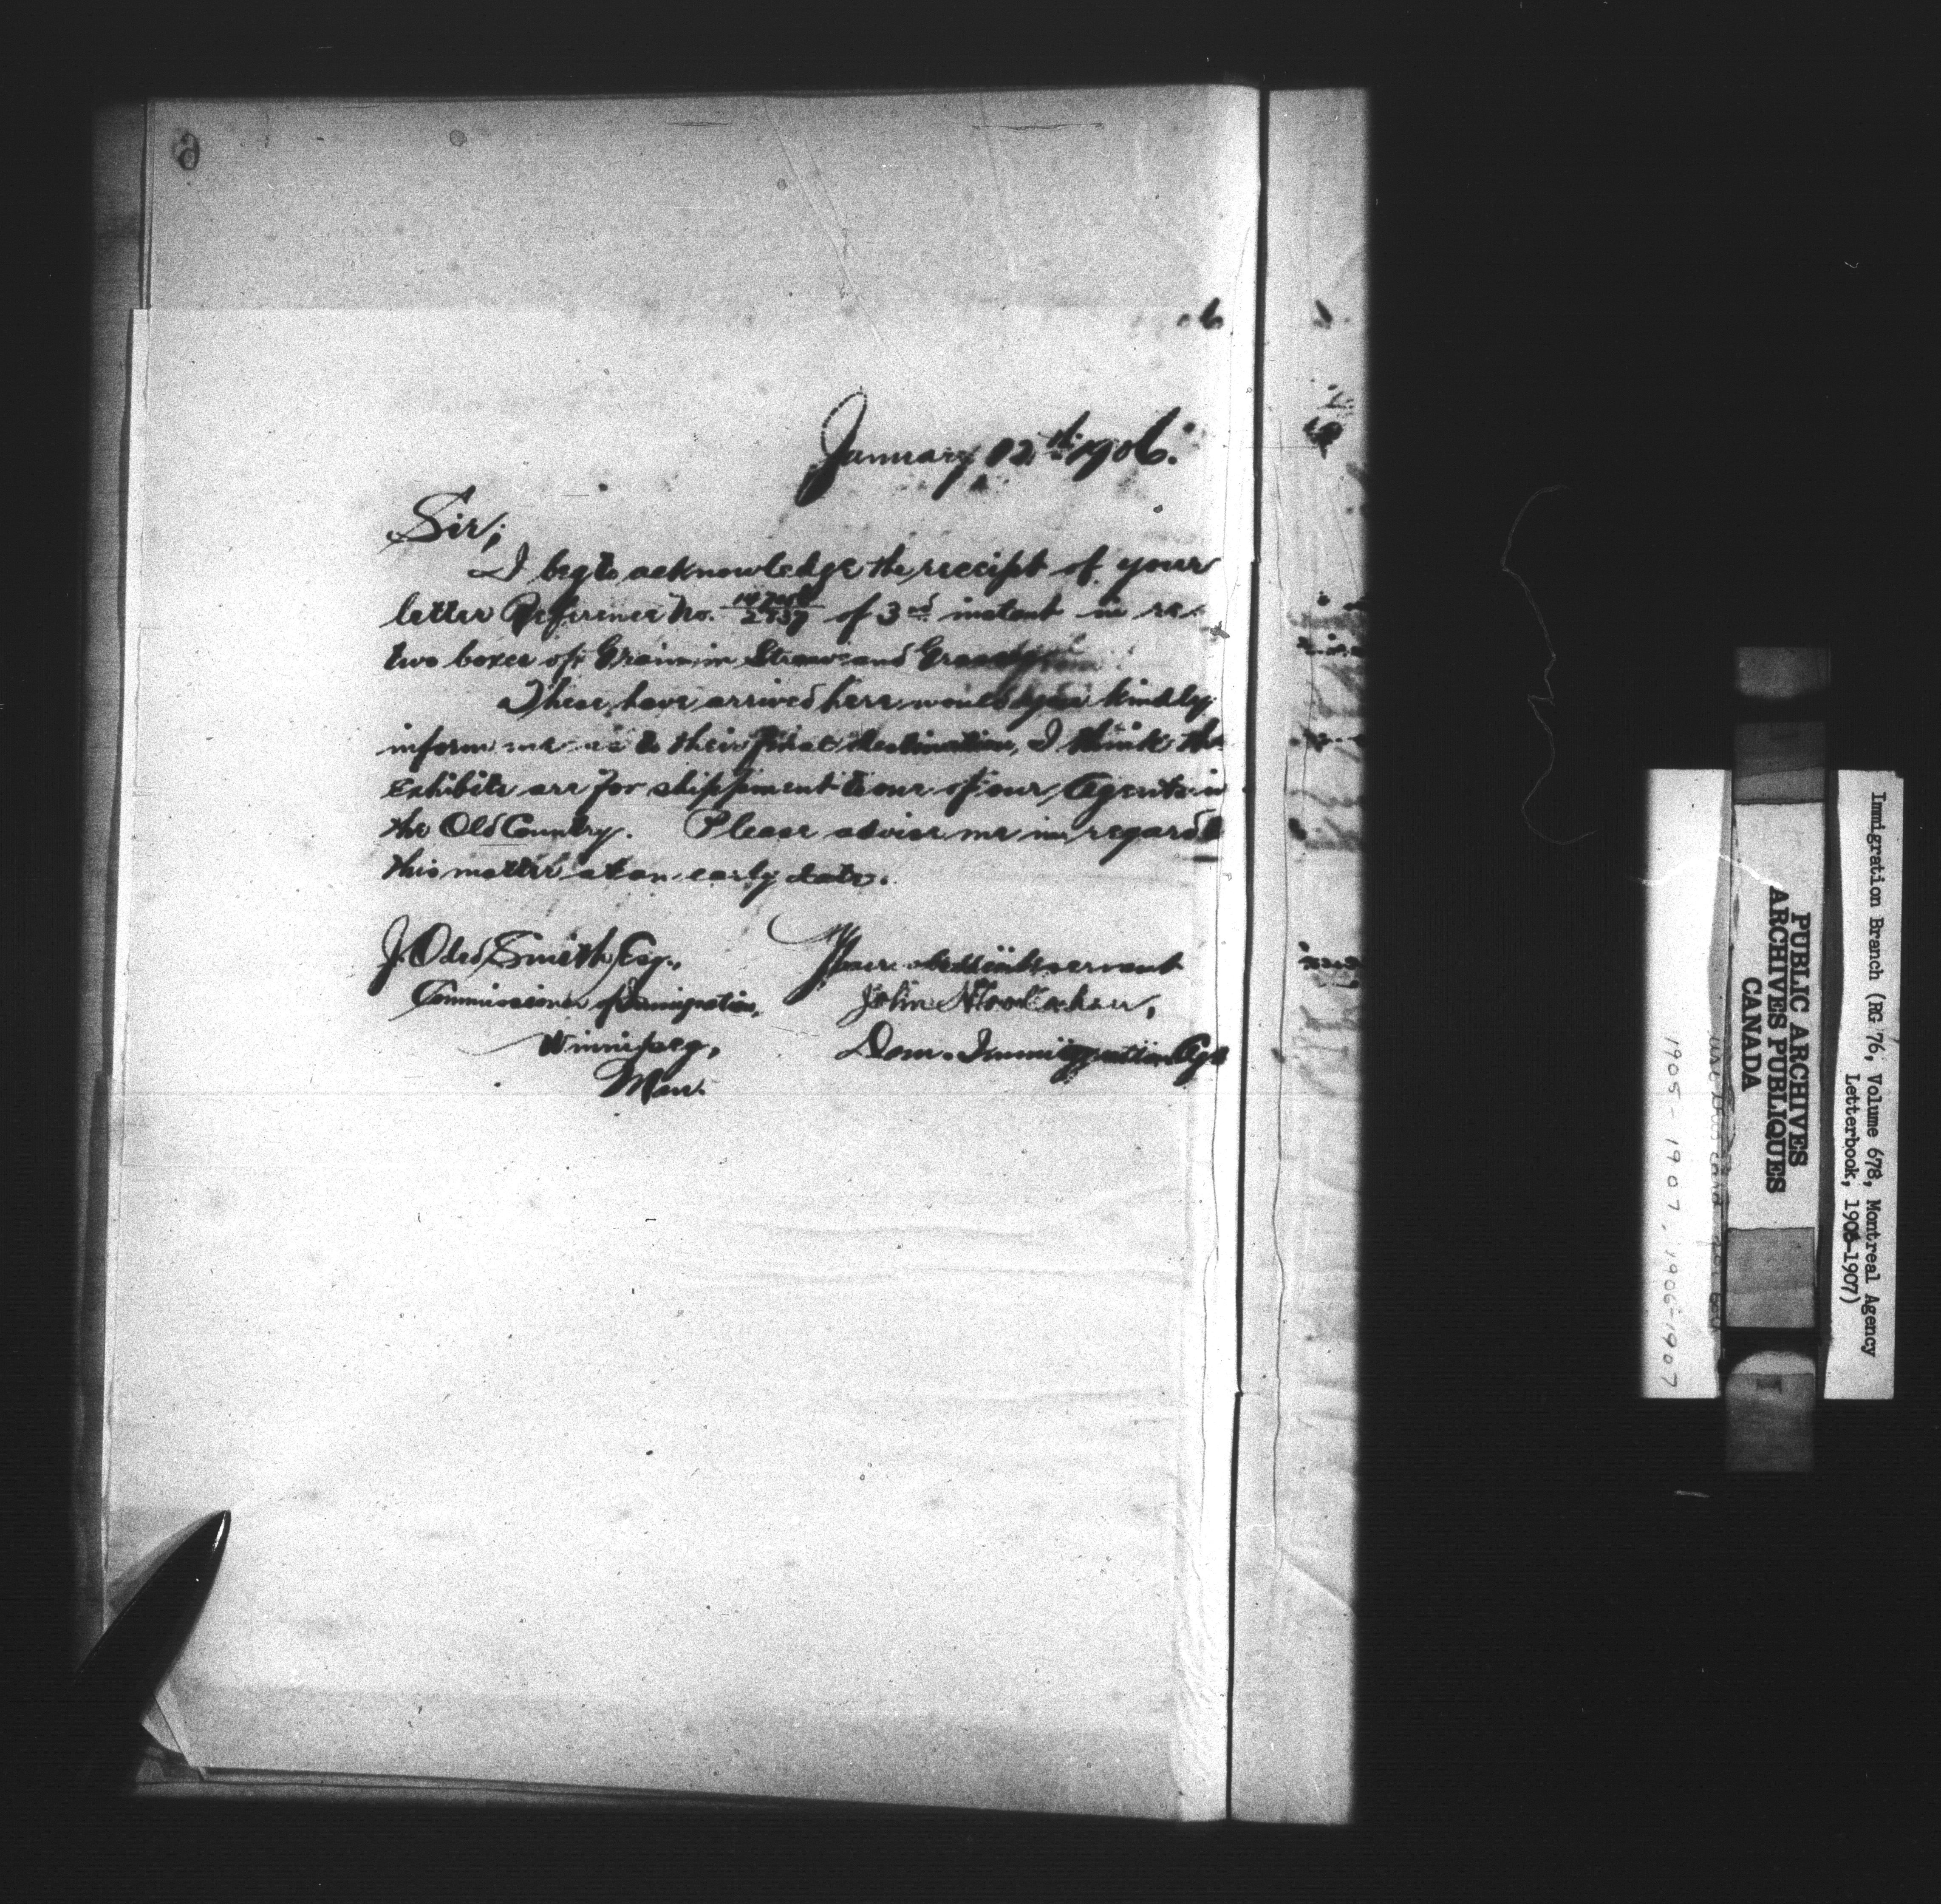 6
January 12th 1906.
Sir;
I beg to acknowledge the receipt of your
letter Reference No. of 3rd instant in re
two boxes of Grain in Straw and
These have arrived here would you kindly
inform me as to their final destination, I think the
Exhibits are for shippment to one of our Agents in
the Old Country. Please advise me in regard to
this matter at an early date.
J. Obed Smith Esq.,
Commissioner of Immigration,
Winnipeg,
Man.
Your obedient servant
John Hoolahan,
Dom. Immigration Agt
Immigration Branch (RG 76, Volume 678, Montreal Agency
Letterbook, 1906-1907)
PUBLIC ARCHIVES
ARCHIVES PUBLIQUES
CANADA
1905-1907, 1906-1907